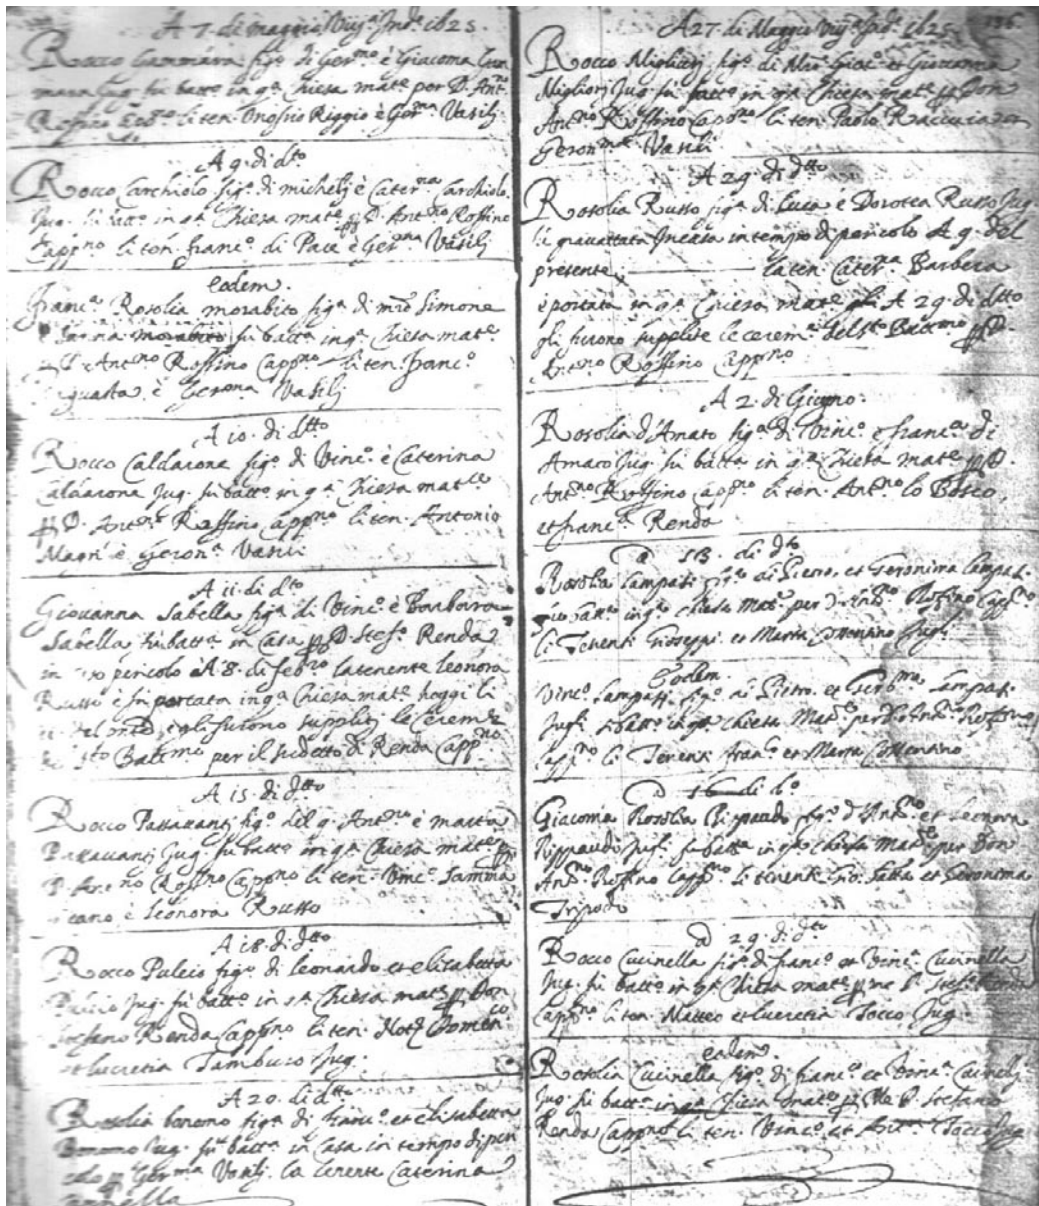 A 7. di maggio Viijª Indᵉ 1625.
Rocco Cammara figº di Gerᵐᵒ è Giacoma Cam
mara Jug. fù battº in qª Chiesa matᵉ per D. Antⁿᵒ
Roffino li ten. Onofrio Riggio è Gerᵐᵃ Vasilj
A 9. di dᵗᵒ
Rocco Carchiolo figº di michelj è Caterⁿᵃ Carchiolo
Jug. fù battº in qª Chiesa matᵉ D. Antⁿᵒ Roffino
Cappⁿᵒ li ten. francº di Pace è Gerⁿᵃ Vasilj
eodem.
francª Rosolia morabito figª di mrº Simone
morabito fù battª in qª Chiesa matᵉ
D. Antⁿᵒ Roffino Cappⁿᵒ li ten. francº
è Gerⁿᵃ Vasilj
A 10. di dᵗᵗᵒ
Rocco Caldarona figº di Vincº è Caterina
Caldarona Jug. fù battº in qª Chiesa matᶜᵉ
D. Antⁿᵒ Roffino Cappⁿᵒ li ten. Antonio
Magrì è Geronª Vasilj
A 11. di dᵗᵒ
Giovanna Sabella figª di Vincº è Barbara
Sabella fù battª in Casa D. Stefº Renda
in pericolo A 8. di febⁿᵒ la tenente leonora
Russo è fù portata in qª Chiesa matᵉ hoggi li
11. del gli furono suppliti le Cerem
Battᵐᵒ per il sudetto di Renda Cappⁿᵒ
A 15. di dᵗᵗᵒ
Rocco Passavantj figº del q. Antⁿᵒ è matta
Passavantj Jug. fù battº in qª Chiesa matᵉ
D. Antⁿᵒ Roffno Cappⁿᵒ li ten. Vincº Tamma
è leonora Russo
A 18. di dᵗᵗᵒ
Rocco Puleio figº di leonardo et elisabetta
Puleio Jug. fù battº in qª Chiesa matᵉ Don
Stefano Renda Cappⁿᵒ li ten. Notʳ Domenᶜᵒ
et lucretia Tamburo Jug.
A 20. di dᵗᵗᵒ
Rosolia bonomo figª di francº et elisabetta
Bonomo Jug. fù battª in Casa in tempo di peri
colo Gerᵐᵃ Vasilj. la tenente Caterina
A 27. di Maggio Viijª Indᵉ 1625. 136
Rocco Migliorj figº di Mrº et Giovanna
Migliorj Jug. fù battº in qª Chiesa matᵉ Don
Antⁿᵒ Roffino Cappⁿᵒ li ten. Paolo
Geronᵐᵃ Vasilj
A 29. di dᵗᵗᵒ
Rosolia Russo figª di luca è Dorotea Russo Jug
fù gravattata Incasa in tempo di pericolo A 9. del
presente la ten. Caterⁿᵃ Barbera
è portata in qª Chiesa matᵉ A 29. di dᵗᵗᵒ
gli furono supplite le ceremᵉ del Sᵗᵒ Battᵐᵒ D.
Antⁿᵒ Roffino Cappⁿᵒ
A 2. di Giugno.
Rosolia d'Amato figª di Vincº è francª di
Amato Jug. fù battª in qª Chiesa matᵉ D.
Antⁿᵒ Roffino Cappⁿᵒ li ten. Antⁿᵒ lo Bosco
et francª Renda
a 13. di dᵗᵒ
Rosolia Campati figª di Pietro, et Geronima Campati
in qª chiesa Matᵉ per D. Antⁿᵒ Roffino Cappⁿᵒ
li Tenenti Gioseppi et Maria Jugˡⁱ
Eodem.
Vincº Campati figº di Pietro et Gerᵐᵃ Campati
Jugˡⁱ fù battº in qª chiesa Matᵉ per D. Antⁿᵒ Roffino
Cappⁿᵒ li Tenenti francº et Maria
a 16 di dᵒ
Giacoma Rosolia Rippaudo figª d'Antⁿᵒ et leonora
Rippaudo Jugˡⁱ fù battª in qª chiesa Matᵉ per Don
Antⁿᵒ Roffino Cappⁿᵒ li tenenti Giº et Geronima
Tripodo
a 29. di dᵗᵒ
Rocco Cucinella figº di francº et Vincª Cucinella
Jug. fù battº in qª Chiesa matᵉ me D. Stefº Renda
Cappⁿᵒ li ten. Matteo et lucretia Tocco Jug.
eodem.
Rosolia Cucinella figª di francº et Vincª Cucinella
Jug fù battª in qª Chiesa matᵉ Me D. Stefano
Renda Cappⁿᵒ li ten. Vincº et Tocco Jug